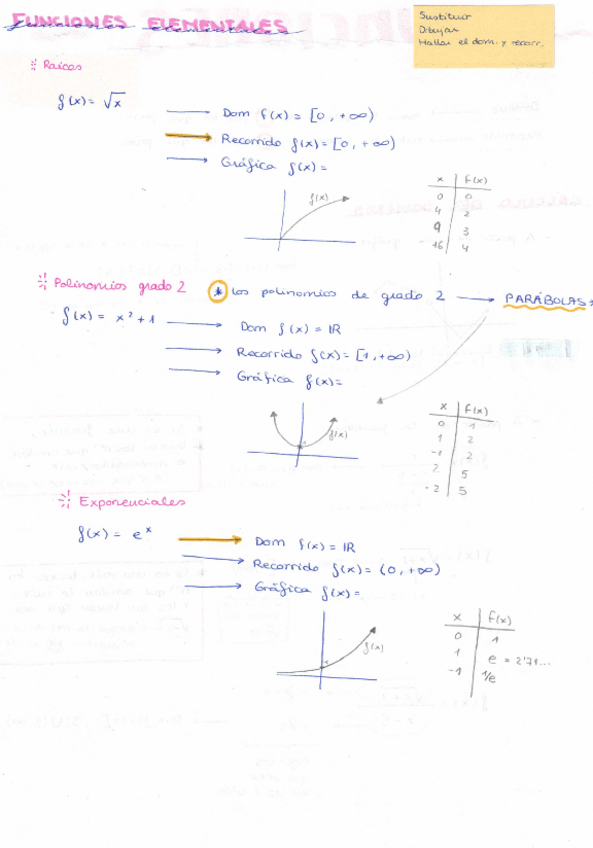 FUNCIONES ELEMENTALES
Sustituir
Dibujar
Hallar el dom. y recorr.
Raíces
f(x) = √x
Dom f(x) = [0, +∞)
Recorrido f(x) = [0, +∞)
Gráfica f(x) =
f(x)
x f(x)
0 0
4 2
9 3
16 4
Polinomios grado 2
* Los polinomios de grado 2 → PARÁBOLAS
f(x) = x² + 1
Dom f(x) = ℝ
Recorrido f(x) = [1, +∞)
Gráfica f(x) =
f(x)
x f(x)
0 1
1 2
-1 2
2 5
-2 5
Exponenciales
f(x) = eˣ
Dom f(x) = ℝ
Recorrido f(x) = (0, +∞)
Gráfica f(x) =
f(x)
x f(x)
0 1
1 e = 2'71...
-1 1/e